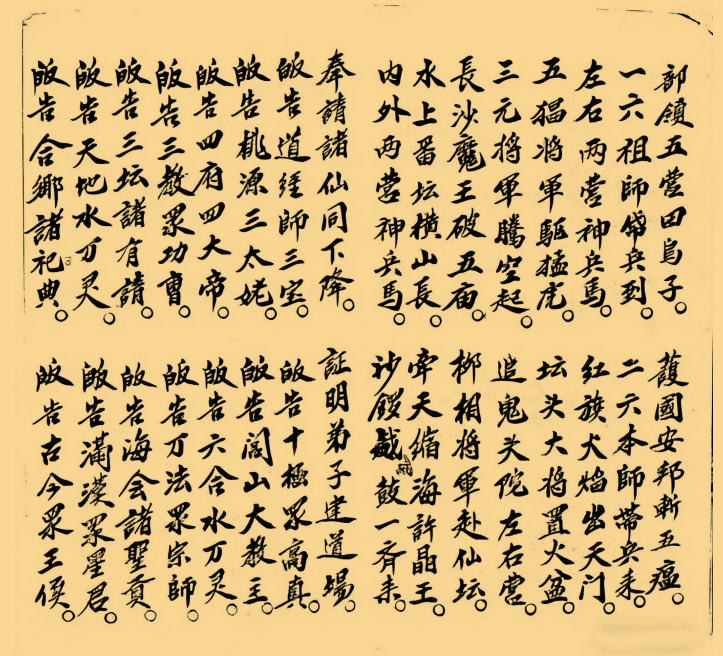 部領五营田烏子
護國安邦斬五瘟
一六祖師帒兵到
二六本師蒂兵来
左右两营神兵馬
红旗火焰出天门
五猖将軍駈猛虎
坛头大将置火盆
三元将軍騰空起
追鬼头陀左右营
長沙魔王破五庙
柳相将軍赴仙坛
水上番坛横山長
牵天缩海許晶王
内外两营神兵馬
沙鑼鼓一齐来
奉請諸仙同下降
証明弟子建道場
皈告道经師三宝
皈告十極眾高真
皈告桃源三太姥
皈告闾山大教主
皈告四府四大帝
皈告六合水万灵
皈告三教眾功曹
皈告万法眾宗師
皈告三坛諸有請
皈告海会諸聖贤
皈告天地水万灵
皈告滿漢眾星君
皈告合鄉諸祀典
皈告古今眾王侯